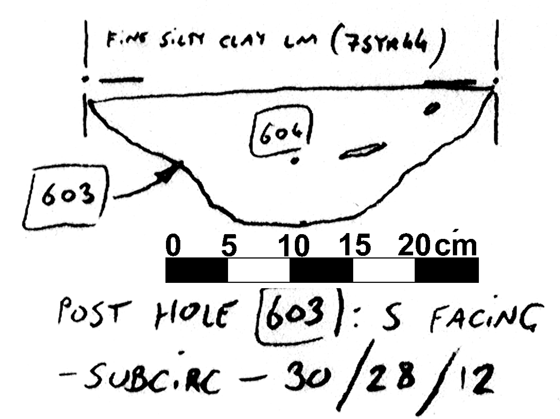 FINE SILTY CLAY LM (7SYR44)
604
603
0 5 10 15 20cm
POST HOLE 603: S FACING
-SUBCIRC - 30/28/12